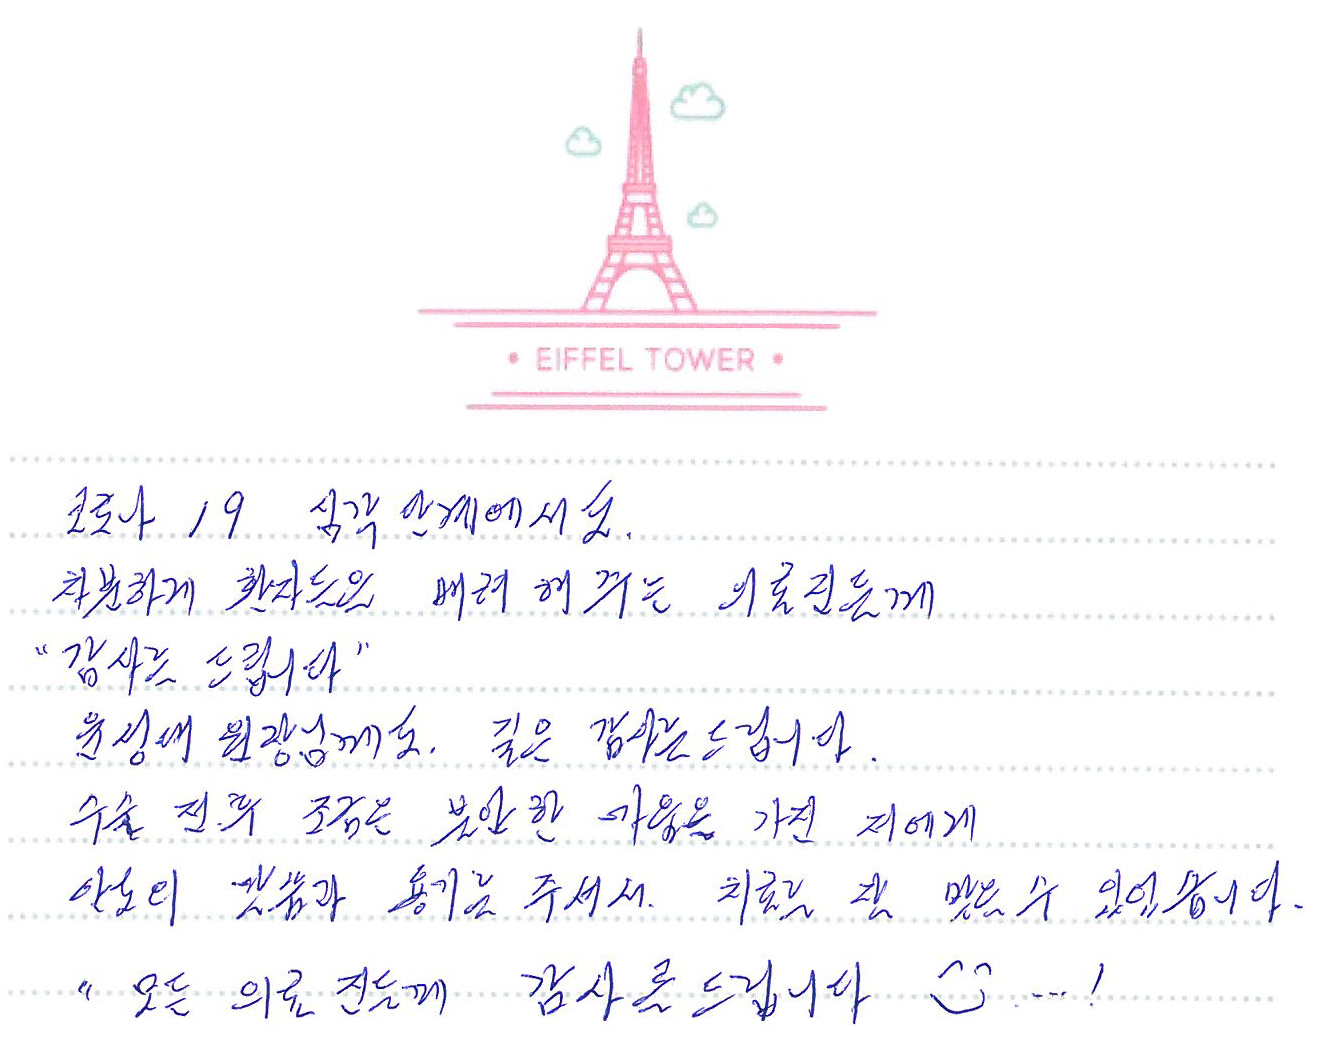 • EIFFEL TOWER •
코로나 19 심각 단계에서도.
차분하게 환자들을 배려해 주는 의료진들께
"감사를 드립니다"
윤성대 원장님께도. 깊은 감사를 드립니다.
수술 전.후 조금은 불안한 마음을 가진 저에게
안도의 말씀과 용기를 주셔서. 치료를 잘 받을 수 있었습니다.
" 모든 의료진들께 감사를 드립니다 ....!